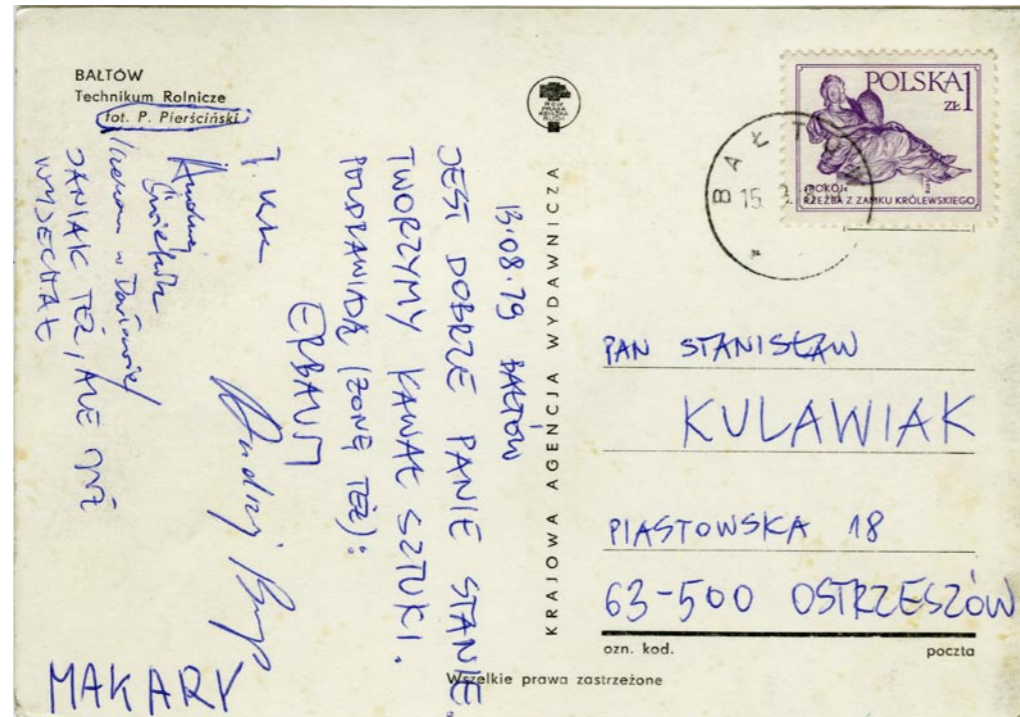 BAŁTÓW
Technikum Rolnicze
fot. P. Pierściński
KRAJOWA AGENCJA WYDAWNICZA
POLSKA 1
ZŁ
POKÓJ
RZEŹBA Z ZAMKU KRÓLEWSKIEGO
BAŁTÓW
15
13.08.79 BAŁTÓW
JEST DOBRZE PANIE STANIE.
TWORZYMY KAWAŁ SZTUKI.
POZDRAWIAJĄ (ŻONĘ TEŻ):
Andrzej
w Darłowie
JANIAK TEŻ, ALE JUŻ
WYJECHAŁ
MAKARY
PAN STANISŁAW
KULAWIAK
PIASTOWSKA 18
63-500 OSTRZESZÓW
ozn. kod. poczta
Wszelkie prawa zastrzeżone